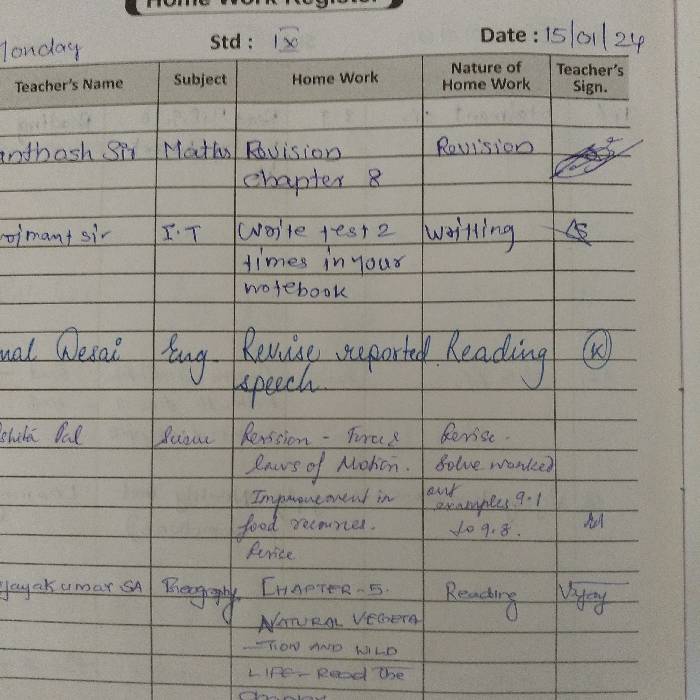 Home Work Register
Monday Std : IX Date : 15/01/24
Teacher's Name Subject Home Work Nature of Home Work Teacher's Sign.
anthosh Sir Maths Revision Revision
chapter 8
ojmant sir I.T Write test 2 Writting
times in your
notebook
nal Desai Eng Revise reported Reading K
speech.
shita Pal Revision - Force & Revise.
laws of Motion. Solve worked
Improvement in out examples 9.1
food resources. to 9.8.
Revise
jayakumar SA Geography CHAPTER-5. Reading Vijay
NATURAL VEGETA
-TION AND WILD
LIFE- Read the
Chapter